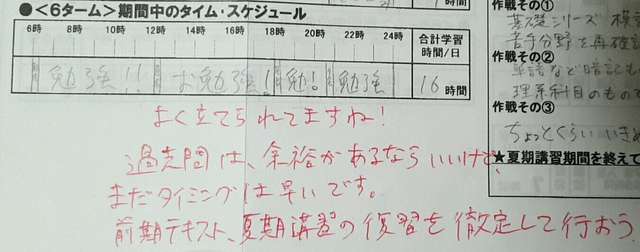 ●<6ターム>期間中のタイム・スケジュール
6時 8時 10時 12時 14時 16時 18時 20時 22時 24時 合計学習時間/日
勉強!! お勉強! 勉! 勉強 16時間
よく立てられてますね!
過去問は、余裕があるならいいけど、
まだタイミングは早いです。
前期テキスト、夏期講習の復習を徹定して行おう
作戦その①
基礎シリーズ
苦手分野を再確認
作戦その②
単語など暗記も
理系科目のもので
作戦その③
ちょっとくらい
★夏期講習期間を終えて